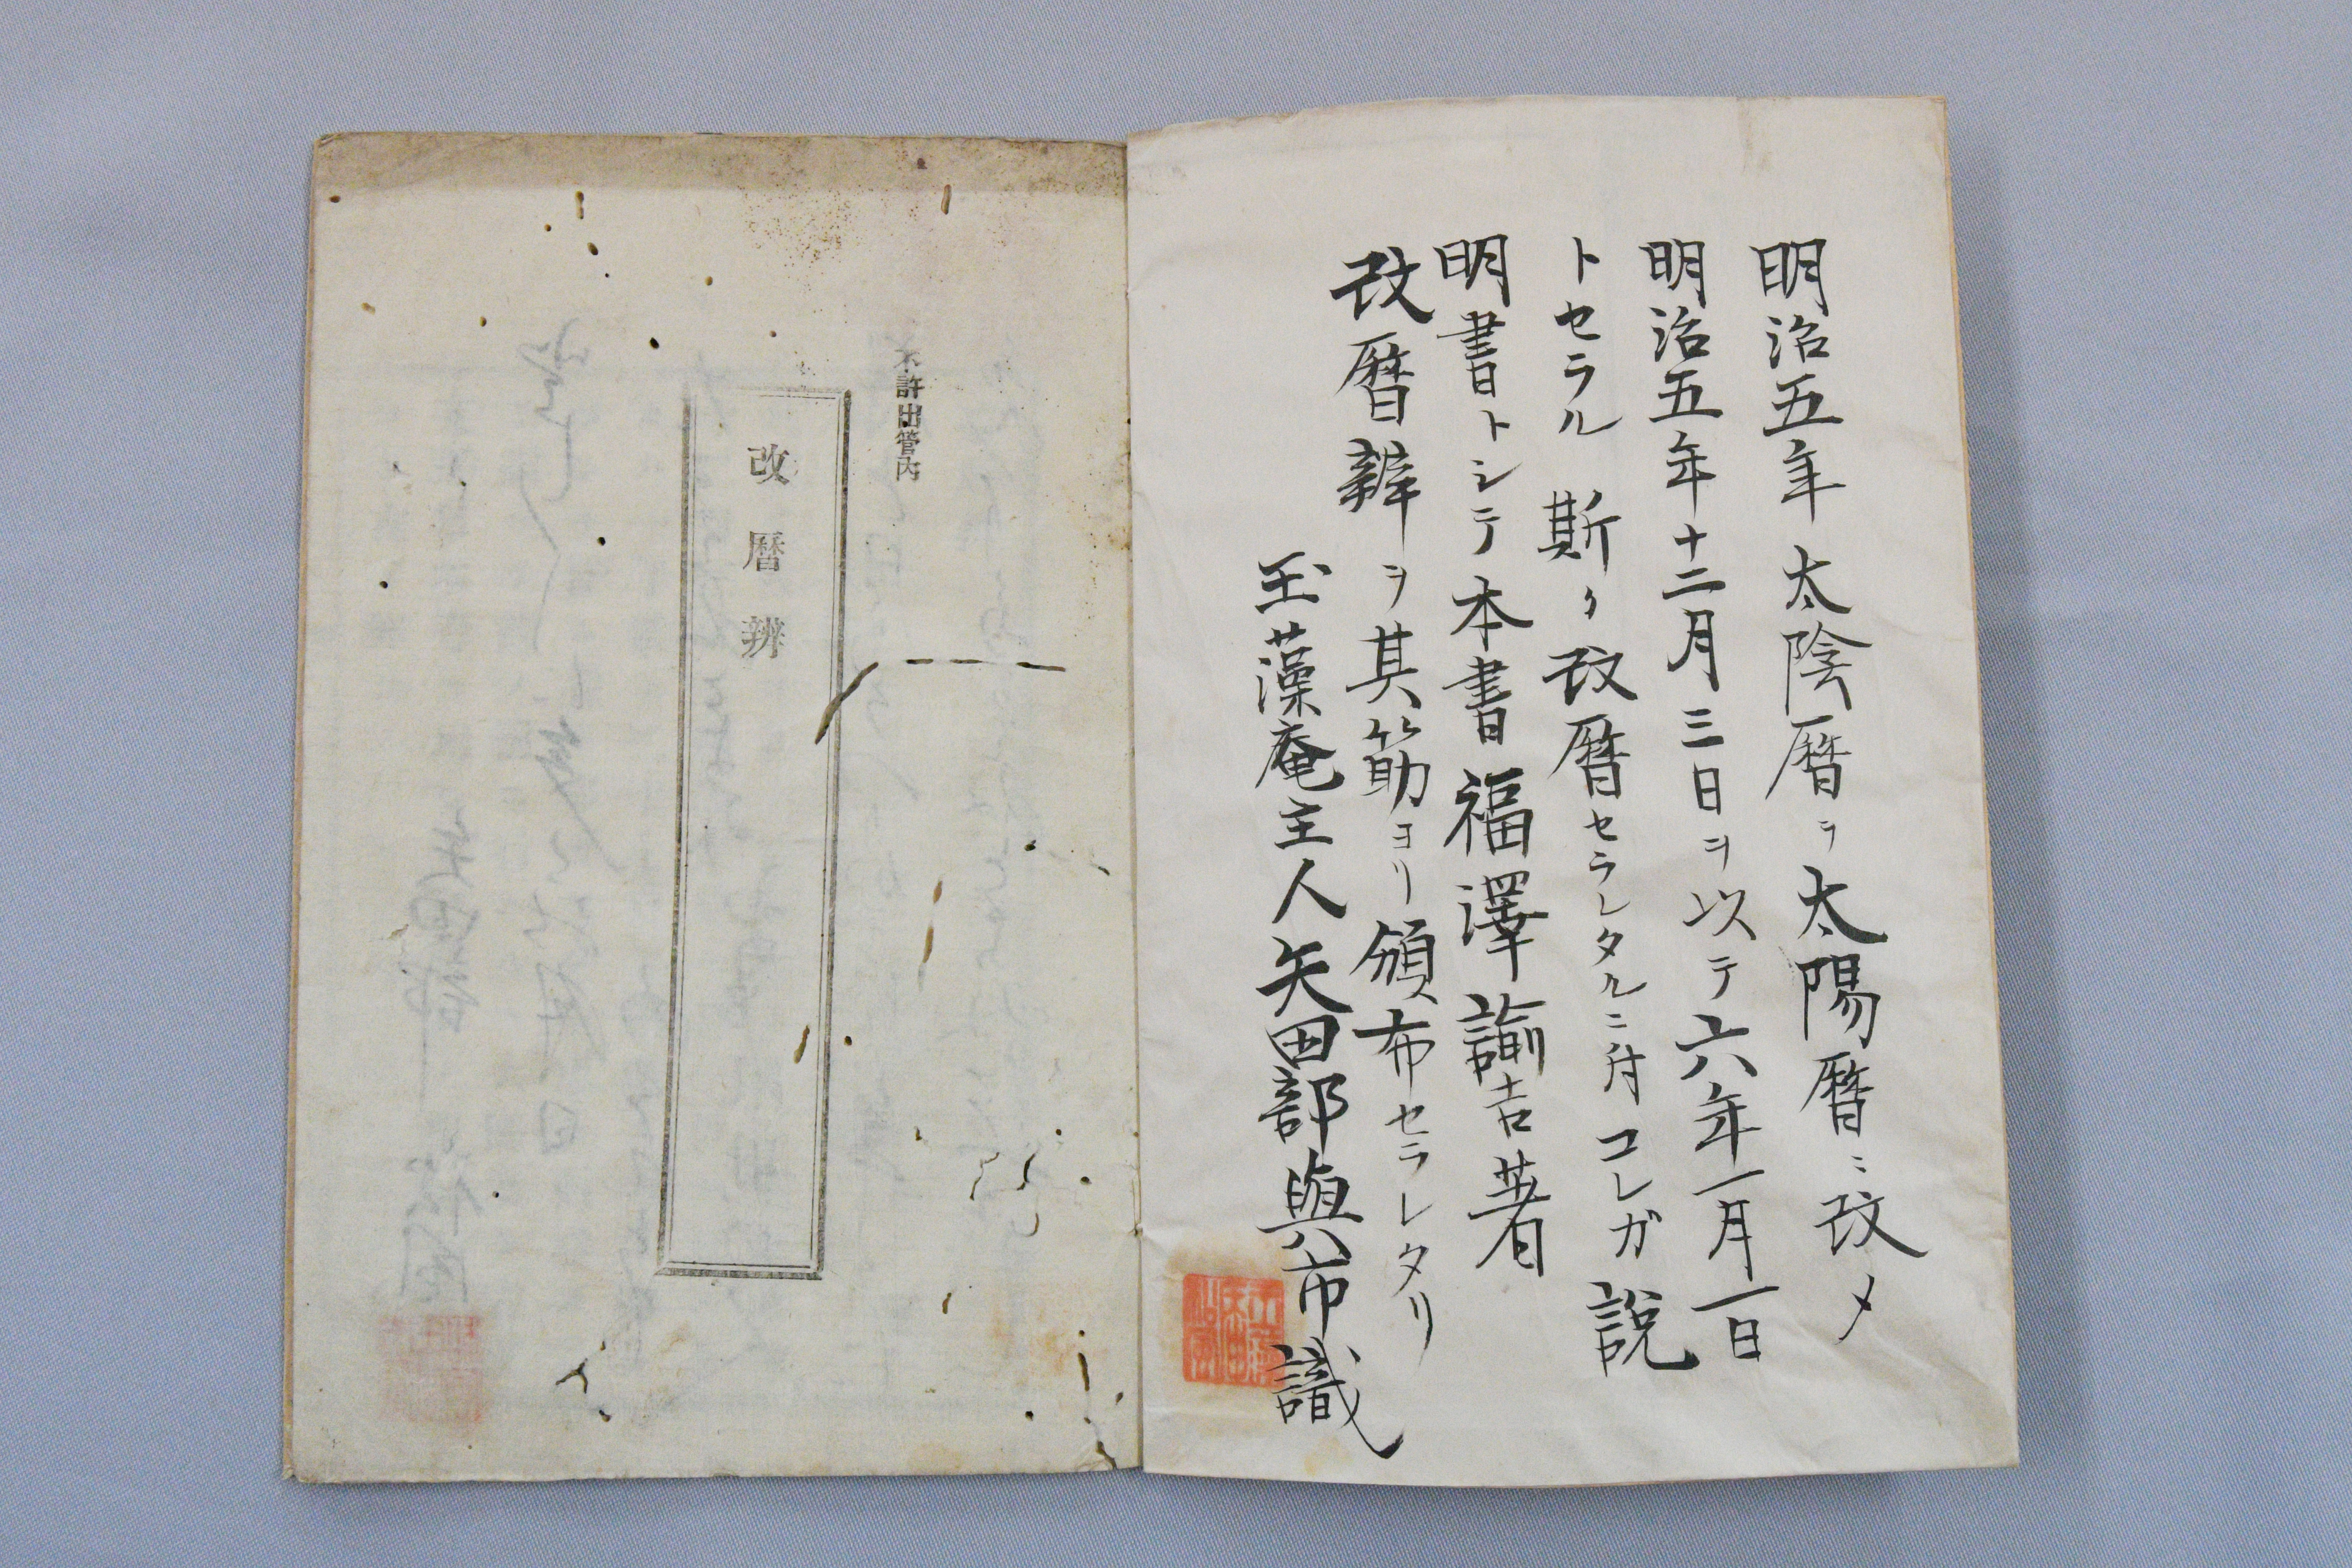 明治五年太陰暦ヲ太陽暦ニ改メ
明治五年十二月三日ヲ以テ六年一月一日
トセラル 斯ク改暦セラレタルニ付コレガ説
明書トシテ本書福澤諭吉著
改暦辨ヲ其筋ヨリ頒布セラレタリ
玉藻庵主人矢田部與市識
不許出管内
改暦辨